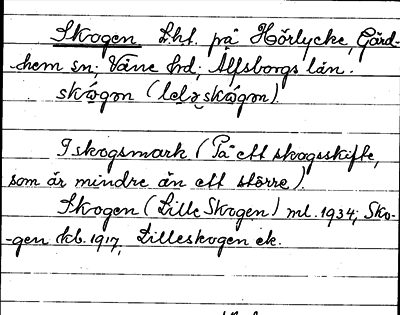 Skogen Lht. på Hörlycke, Gärd-
hem sn; Väne hd; Älfsborgs län.
skógən (lelə skógən).
I skogsmark (På ett skogsskifte,
som är mindre än ett större).
Skogen (Lille Skogen) ml. 1934; Sko-
-gen kb. 1917, Lilleskogen ek.